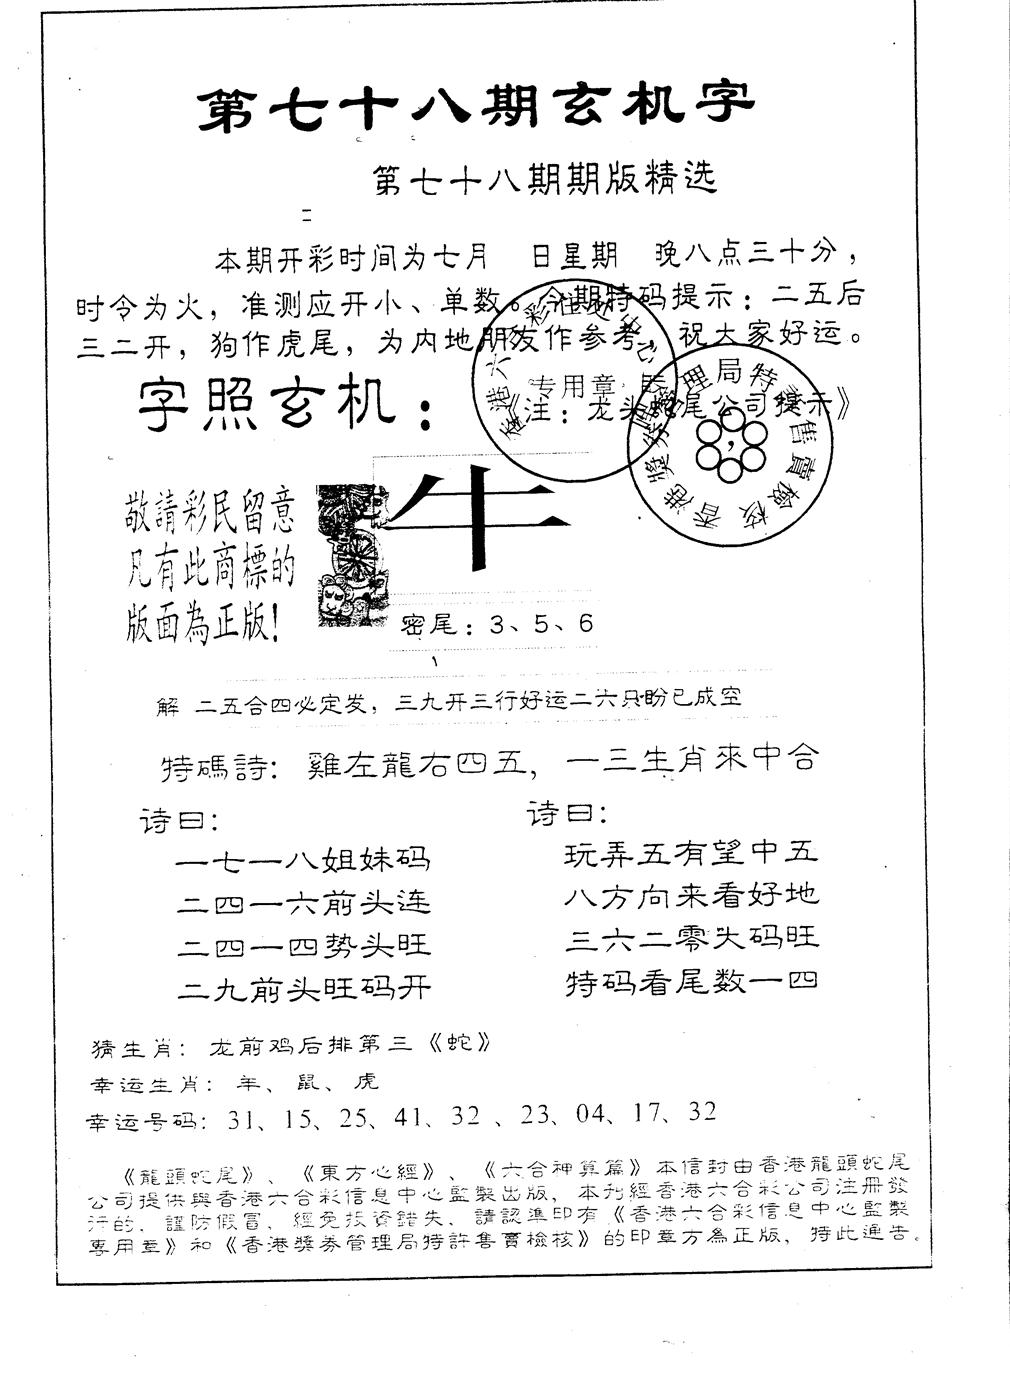 第七十八期玄机字
第七十八期期版精选
二
本期开彩时间为七月 日星期 晚八点三十分，
时令为火，准测应开小、单数。今期特码提示：二五后
三二开，狗作虎尾，为内地朋友作参考。祝大家好运。
字照玄机：
《注：龙头蛇尾公司提示》
专用章
敬請彩民留意
凡有此商標的
版面為正版！
牛
密尾：3、5、6
解 二五合四必定发，三九开三行好运二六只盼已成空
特碼詩：雞左龍右四五，一三生肖來中合
诗曰：
一七一八姐妹码
二四一六前头连
二四一四势头旺
二九前头旺码开
诗曰：
玩弄五有望中五
八方向来看好地
三六二零头码旺
特码看尾数一四
猜生肖：龙前鸡后排第三《蛇》
幸运生肖：羊、鼠、虎
幸运号码：31、15、25、41、32、23、04、17、32
《龍頭蛇尾》、《東方心經》、《六合神算篇》本信封由香港龍頭蛇尾
公司提供與香港六合彩信息中心監製出版，本刊經香港六合彩公司注冊發
行的，謹防假冒，經免投資錯失，請認準印有《香港六合彩信息中心監製
專用章》和《香港獎券管理局特許售賣檢核》的印章方為正版，特此通告。